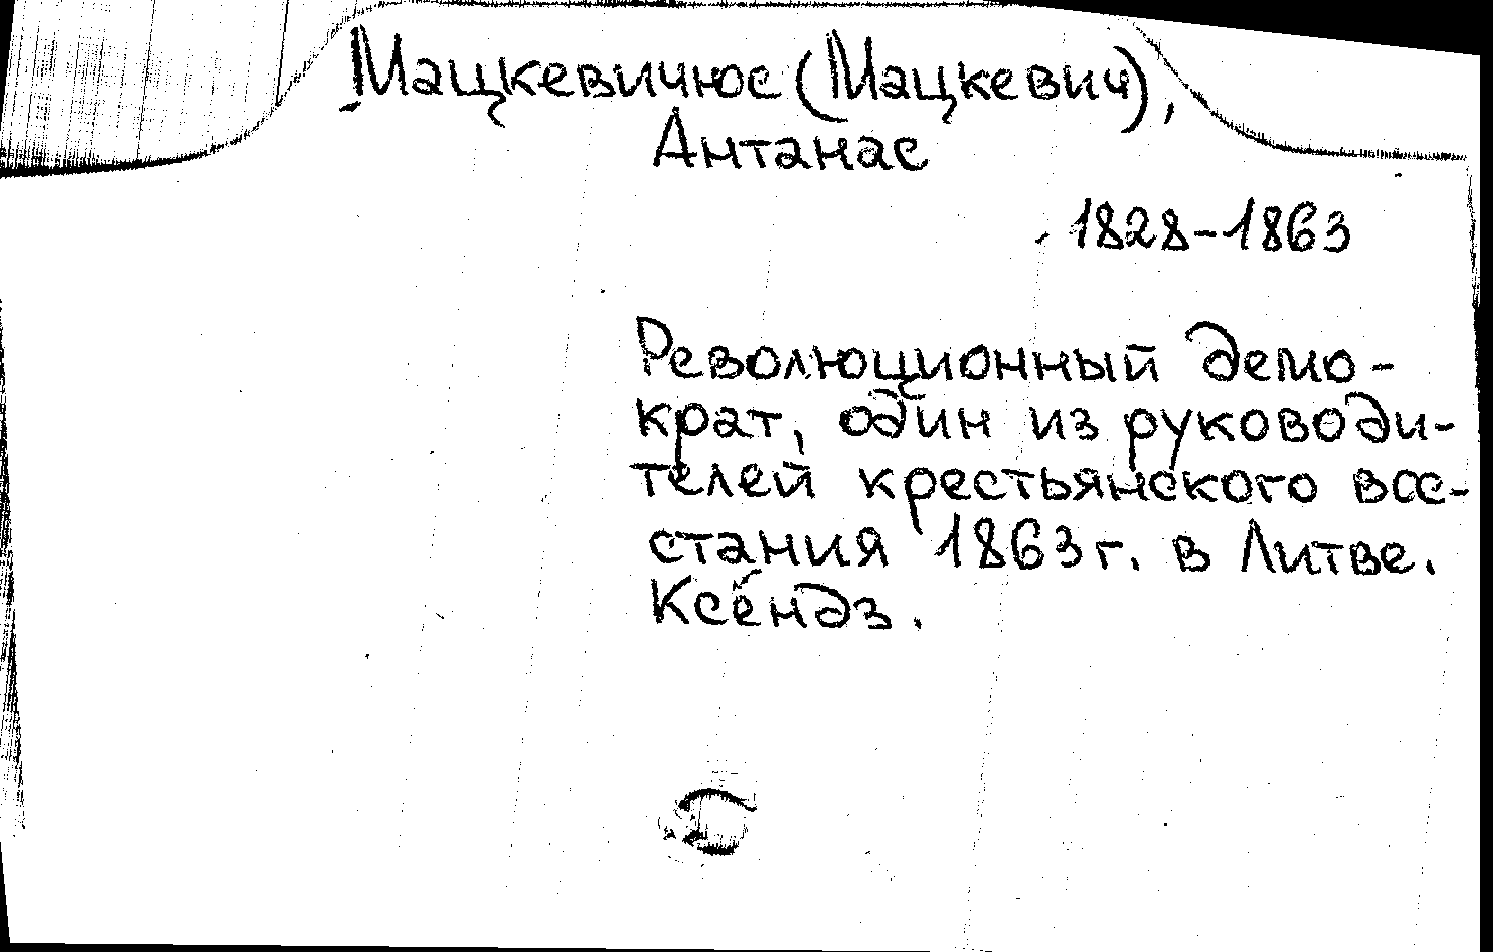 Мацкевичюс (Мацкевич),
Антанас
1828-1863
Революционный демо-
крат, один из руководи-
телей крестьянского вос-
стания 1863 г. в Литве.
Ксёндз.